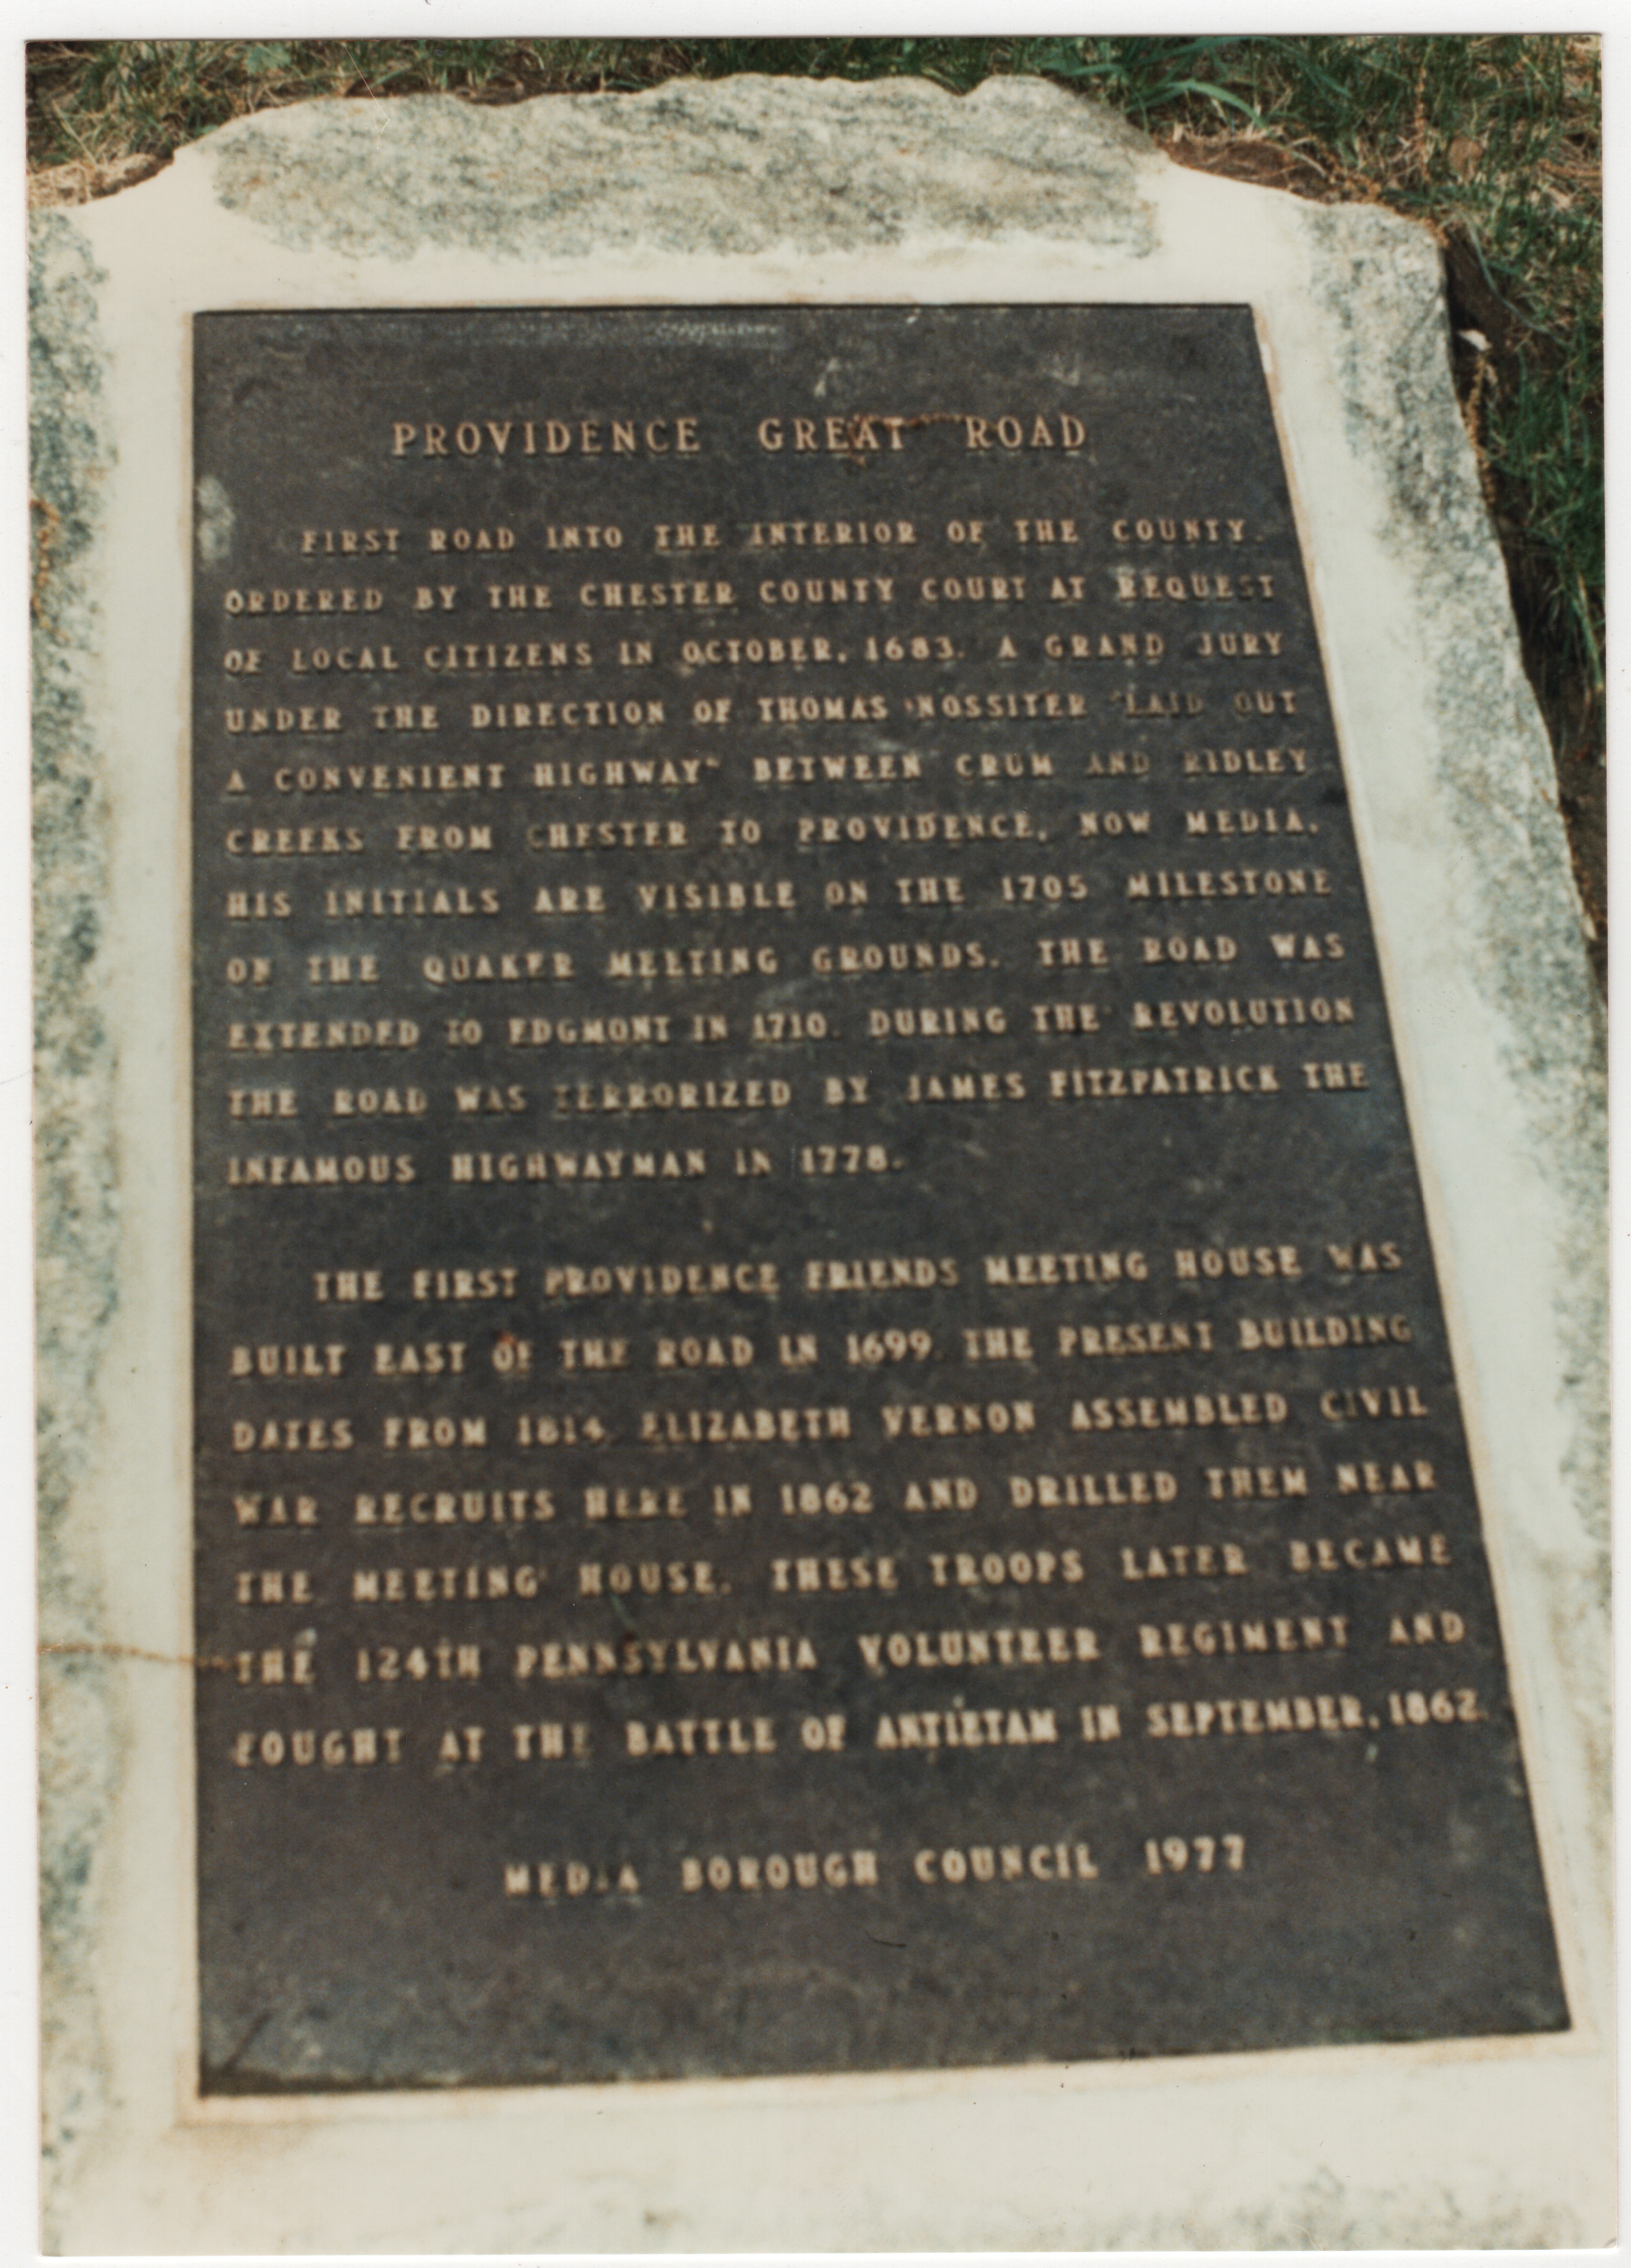 PROVIDENCE GREAT ROAD
FIRST ROAD INTO THE INTERIOR OF THE COUNTY.
ORDERED BY THE CHESTER COUNTY COURT AT REQUEST
OF LOCAL CITIZENS IN OCTOBER, 1683. A GRAND JURY
UNDER THE DIRECTION OF THOMAS NOSSITER "LAID OUT
A CONVENIENT HIGHWAY" BETWEEN CRUM AND RIDLEY
CREEKS FROM CHESTER TO PROVIDENCE, NOW MEDIA.
HIS INITIALS ARE VISIBLE ON THE 1705 MILESTONE
ON THE QUAKER MEETING GROUNDS. THE ROAD WAS
EXTENDED TO EDGMONT IN 1710. DURING THE REVOLUTION
THE ROAD WAS TERRORIZED BY JAMES FITZPATRICK THE
INFAMOUS HIGHWAYMAN IN 1778.
THE FIRST PROVIDENCE FRIENDS MEETING HOUSE WAS
BUILT EAST OF THE ROAD IN 1699. THE PRESENT BUILDING
DATES FROM 1814. ELIZABETH VERNON ASSEMBLED CIVIL
WAR RECRUITS HERE IN 1862 AND DRILLED THEM NEAR
THE MEETING HOUSE. THESE TROOPS LATER BECAME
THE 124TH PENNSYLVANIA VOLUNTEER REGIMENT AND
FOUGHT AT THE BATTLE OF ANTIETAM IN SEPTEMBER, 1862.
MEDIA BOROUGH COUNCIL 1977